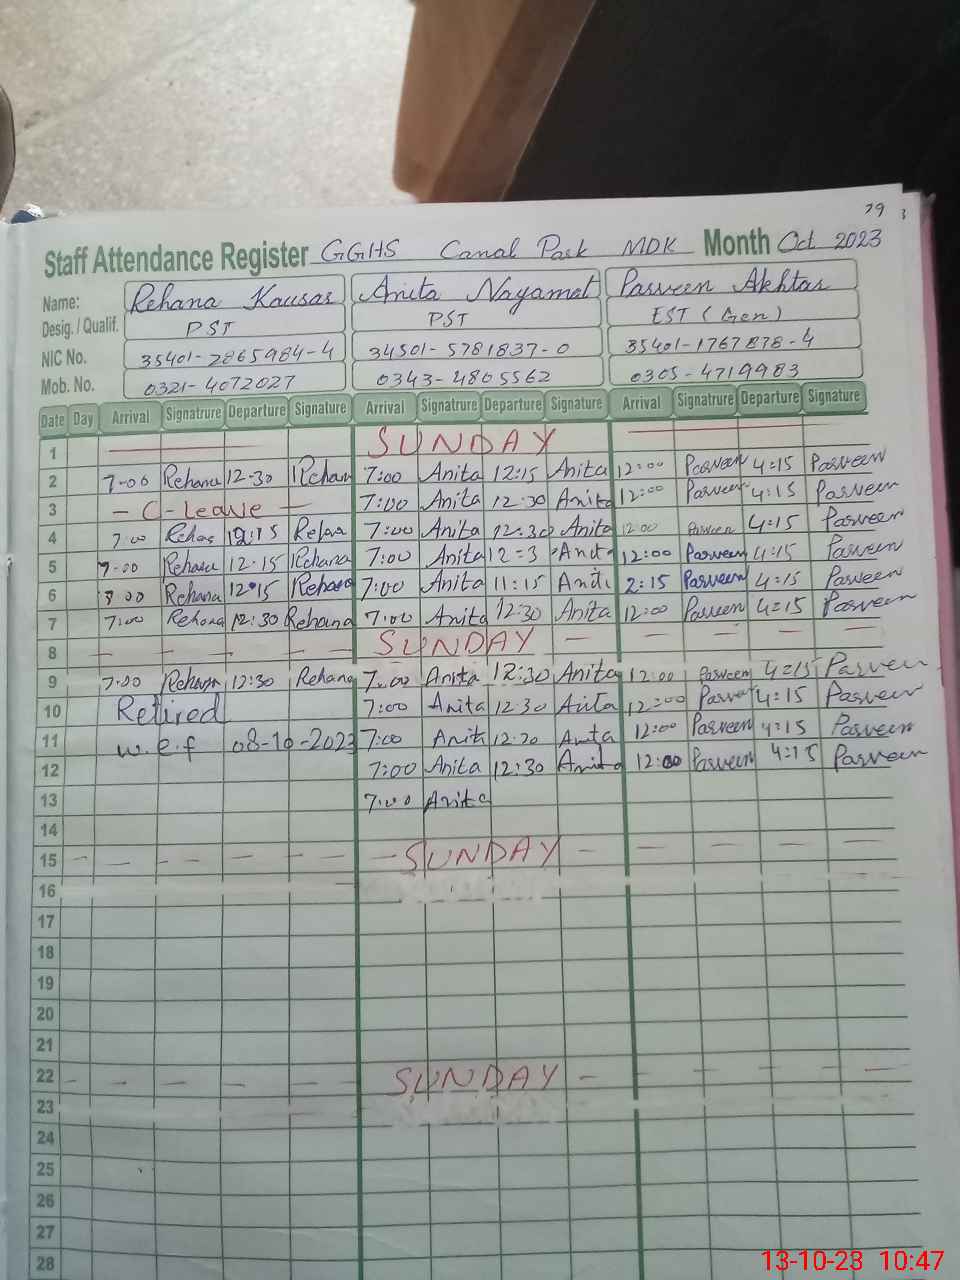 79
Staff Attendance Register GGHS Canal Park MDK Month Oct 2023
Name: Rehana Kausar Anita Nayamat Parveen Akhtar
Desig. / Qualif. PST PST EST (Gen)
NIC No. 35401-2865984-4 34501-5781837-0 35401-1767878-4
Mob. No. 0321-4072027 0343-4805562 0305-4719983
Date Day Arrival Signatrure Departure Signature Arrival Signatrure Departure Signature Arrival Signatrure Departure Signature
1 SUNDAY
2 7-00 Rehana 12-30 Rehan 7:00 Anita 12:15 Anita 12:00 Parveen 4:15 Parveen
3 - C-Leave - 7:00 Anita 12:30 Anita 12:00 Parveen 4:15 Parveen
4 7:00 Rehan 12:15 7:00 Anita 12:30 Anita 12:00 Parveen 4:15 Parveen
5 7-00 Rehana 12-15 Rehana 7:00 Anita 12=3 Anita 12:00 Parveen 4:15 Parveen
6 00 Rehana 12:15 Rehana 7:00 Anita 11:15 Anita 2:15 Parveen 4:15 Parveen
7 7:00 Rehana 12:30 Rehana 7:00 Anita 12:30 Anita 12:00 Parveen 4=15 Parveen
8 SUNDAY
9 7:00 Rehana 12:30 Rehana 7:00 Anita 12:30 Anita 12:00 Parveen 4=15 Parveen
10 Retired 7:00 Anita 12:30 Anita 12:00 Parveen 4:15 Parveen
11 w.e.f 08-10-2023 7:00 Anita 12:30 Anita 12:00 Parveen 4:15 Parveen
12 7:00 Anita 12:30 Anita 12:00 Parveen 4:15 Parveen
13 7:00 Anita
14
15 SUNDAY
16
17
18
19
20
21
22 SUNDAY
23
24
25
26
27
28
13-10-23 10:47